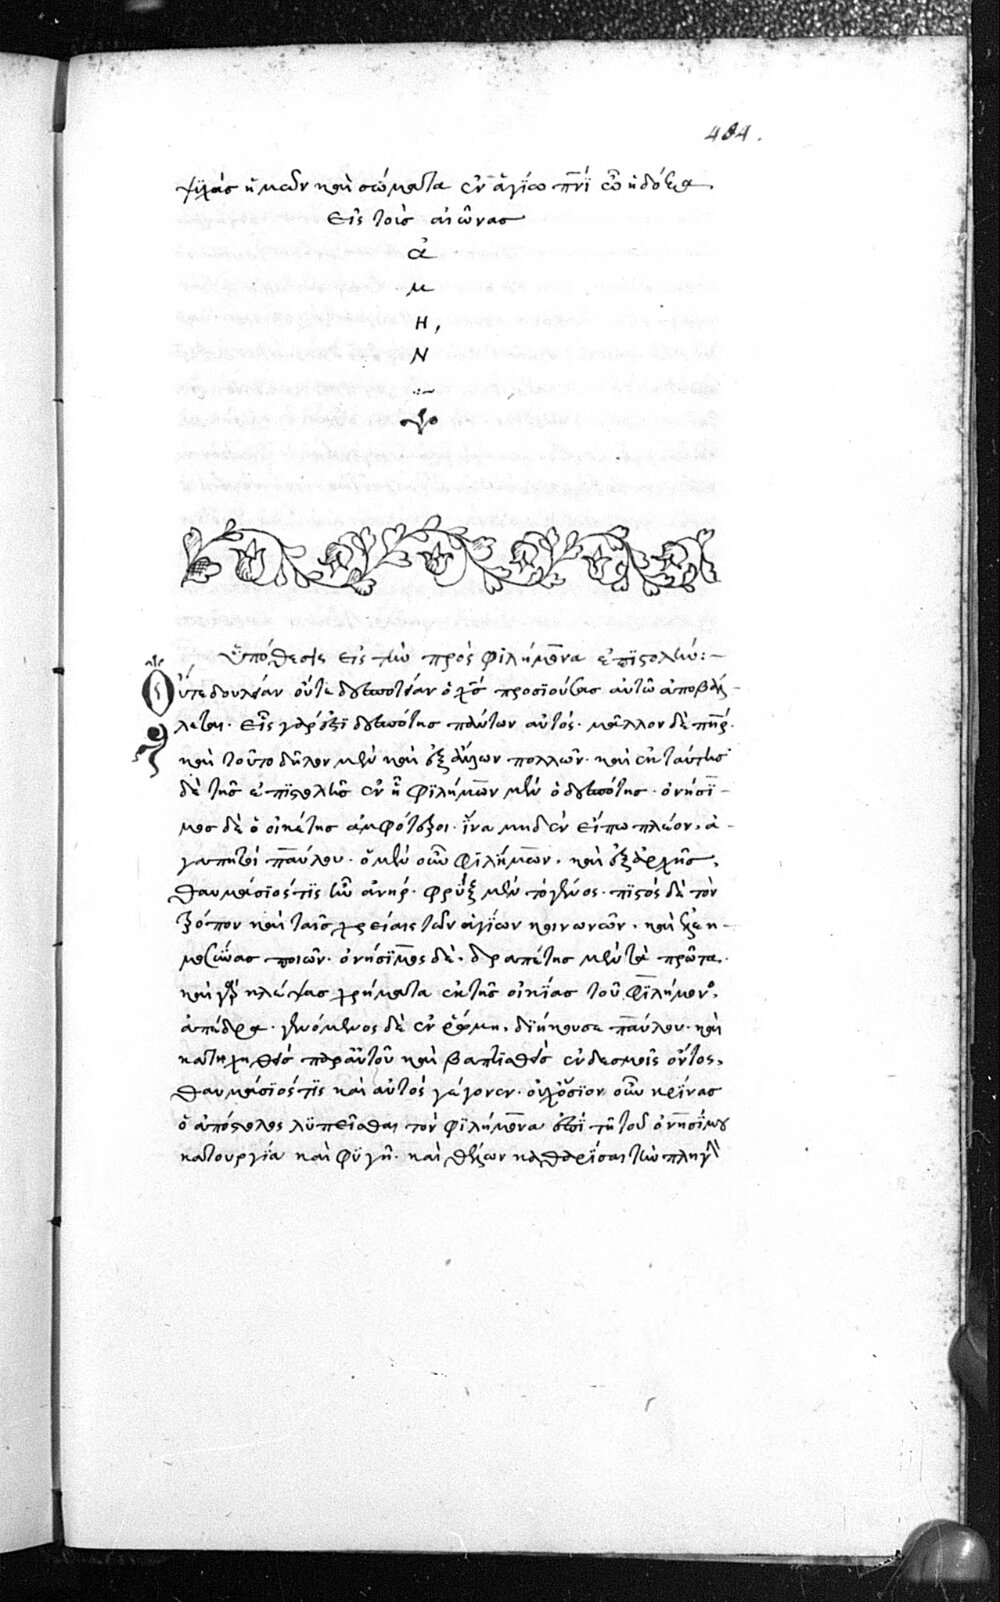 484.
ψυχὰς ἡμῶν καὶ σώματα ἐν ἁγίω πνϊ ὧ ἡ δόξα
εἰς τοὺς αἰῶνας
ἀ
μ
η,
ν
Ὑπόθεσις εἰς τὴν πρὸς φιλήμονα ἐπιστολήν:-
Οὔτε δουλείαν οὔτε δεσποτείαν ὁ χς προσϊούσας αὐτῶ ἀποβάλ-
λεται. εἷς γάρ ἐστϊ δεσπότης πάντων αὐτός. μᾶλλον δὲ πηρ.
καὶ τοῦτο δῆλον μὲν καὶ ἐξ ἄλλων πολλῶν. καὶ ἐκ ταύτης
δὲ τῆς ἐπϊστολῆς ἐν ἧ φιλήμων μὲν ὁ δεσπότης. ὀνήσϊ-
μος δὲ ὁ οἰκέτης ἀμφότεροι. ἵνα μηδὲν εἴπω πλέον, ἀ-
γαπητοὶ παύλου. ὁ μὲν οὖν φϊλήμων, καὶ ἐξ ἀρχῆς,
θαυμάσϊός τϊς ἦν ἀνήρ. φρὺξ μὲν τὸ γένος. πϊστὸς δὲ τὸν
τρόπον καὶ ταῖς χρείαις τῶν ἁγΐων κοινωνῶν, καὶ ἐλεη-
μοσύνας ποιῶν. ὀνήσϊμος δὲ, δραπέτης μὲν τὰ πρῶτα.
καὶ γὰρ κλέψας χρήματα ἐκ τῆς οἰκΐας τοῦ φϊλήμονος,
ἀπέδρα. γενόμενος δὲ ἐν ῥώμη, δϊήκουσε παύλου. καὶ
κατηχηθεὶς παρ' αὐτοῦ καὶ βαπτϊσθεὶς ἐν δεσμοῖς ὄντος,
θαυμάσϊός τϊς καὶ αὐτὸς γέγονεν. οὐχ ὅσϊον οὖν κρΐνας
ὁ ἀπόστολος λϋπεῖσθαι τὸν φϊλήμονα ἐπὶ τῆ τοῦ ὀνησΐμου
κατουργία καὶ φϋγῆ. καὶ θέλων καθαρΐσαι τὴν πληγὴν